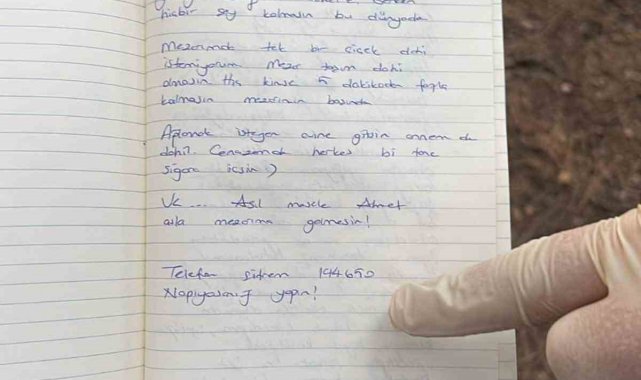 hiçbir şey kalmasın bu dünyada
Mezarımda tek bir çiçek dahi
istemiyorum mezar taşım dahi
olmasın hiç kimse 5 dakikadan fazla
kalmasın mezarımın başında
Ağlamak isteyen evine gitsin annem de
dahil. Cenazemde herkes bi tane
sigara içsin :)
Ve... Asıl mesele Ahmet
asla mezarıma gelmesin!
Telefon şifrem 194650
Napıyosanız yapın!